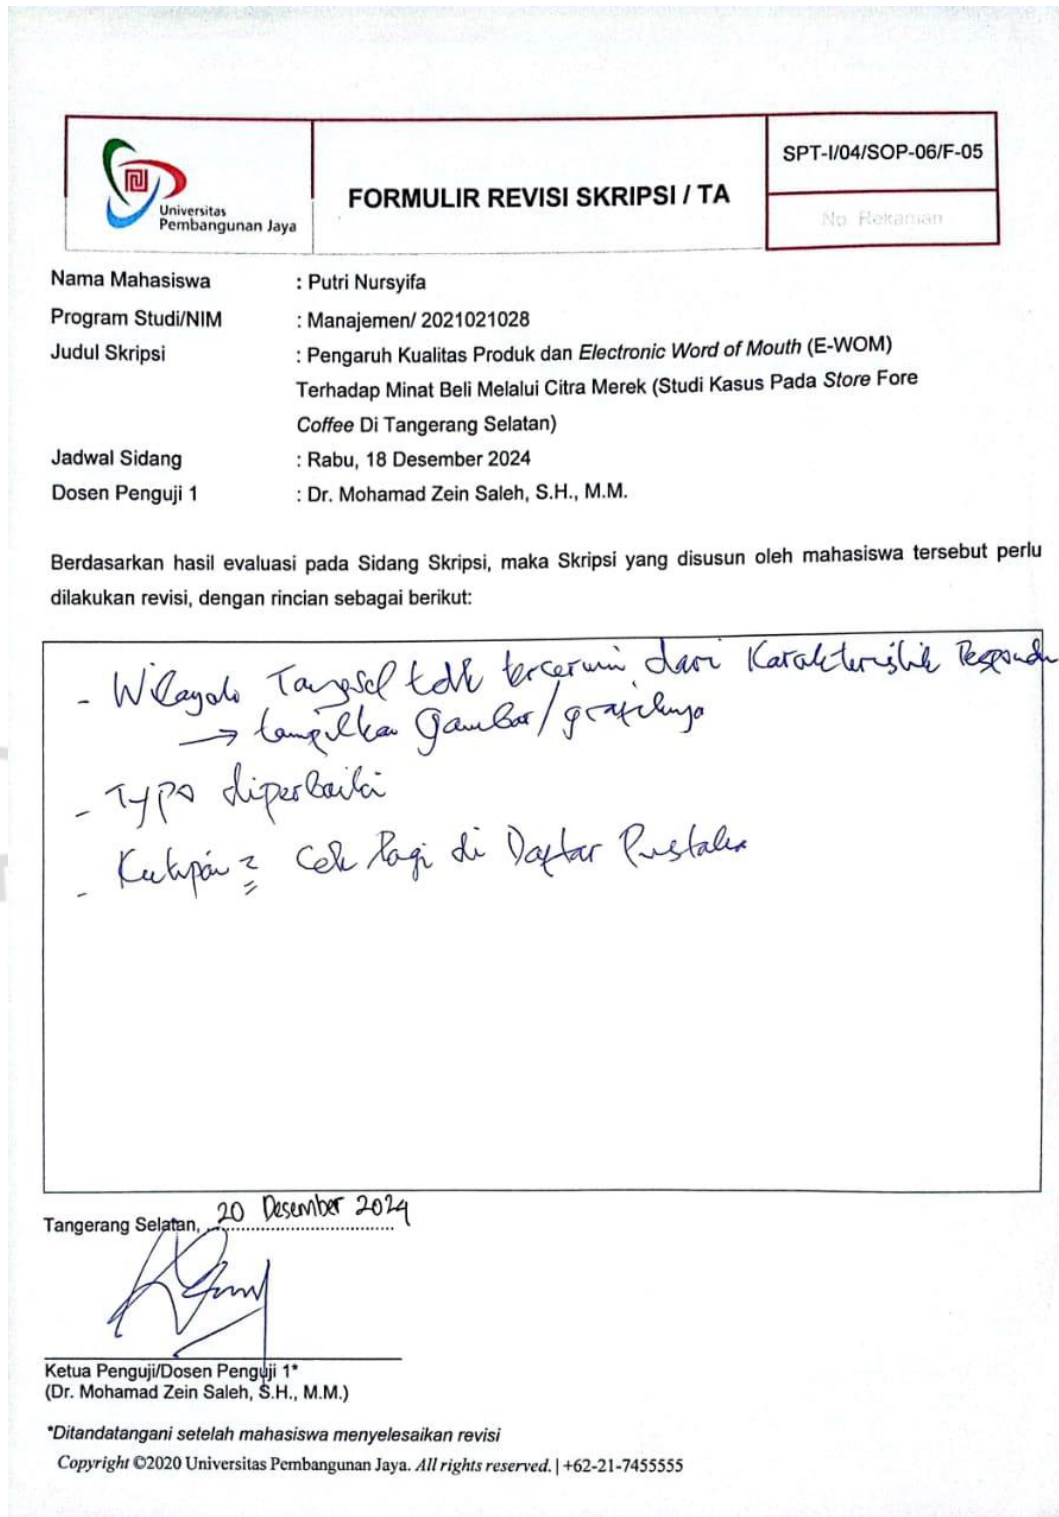 Universitas
Pembangunan Jaya
FORMULIR REVISI SKRIPSI / TA
SPT-I/04/SOP-06/F-05
No. Rekaman
Nama Mahasiswa : Putri Nursyifa
Program Studi/NIM : Manajemen/ 2021021028
Judul Skripsi : Pengaruh Kualitas Produk dan Electronic Word of Mouth (E-WOM)
Terhadap Minat Beli Melalui Citra Merek (Studi Kasus Pada Store Fore
Coffee Di Tangerang Selatan)
Jadwal Sidang : Rabu, 18 Desember 2024
Dosen Penguji 1 : Dr. Mohamad Zein Saleh, S.H., M.M.
Berdasarkan hasil evaluasi pada Sidang Skripsi, maka Skripsi yang disusun oleh mahasiswa tersebut perlu
dilakukan revisi, dengan rincian sebagai berikut:
- Wilayah Tangsel tdk tercermin dari Karakteristik Responden
→ tampilkan gambar/grafiknya
- Typo diperbaiki
- Kutipan = Cek lagi di Daftar Pustaka
Tangerang Selatan, 20 Desember 2024
Ketua Penguji/Dosen Penguji 1*
(Dr. Mohamad Zein Saleh, S.H., M.M.)
*Ditandatangani setelah mahasiswa menyelesaikan revisi
Copyright ©2020 Universitas Pembangunan Jaya. All rights reserved. | +62-21-7455555